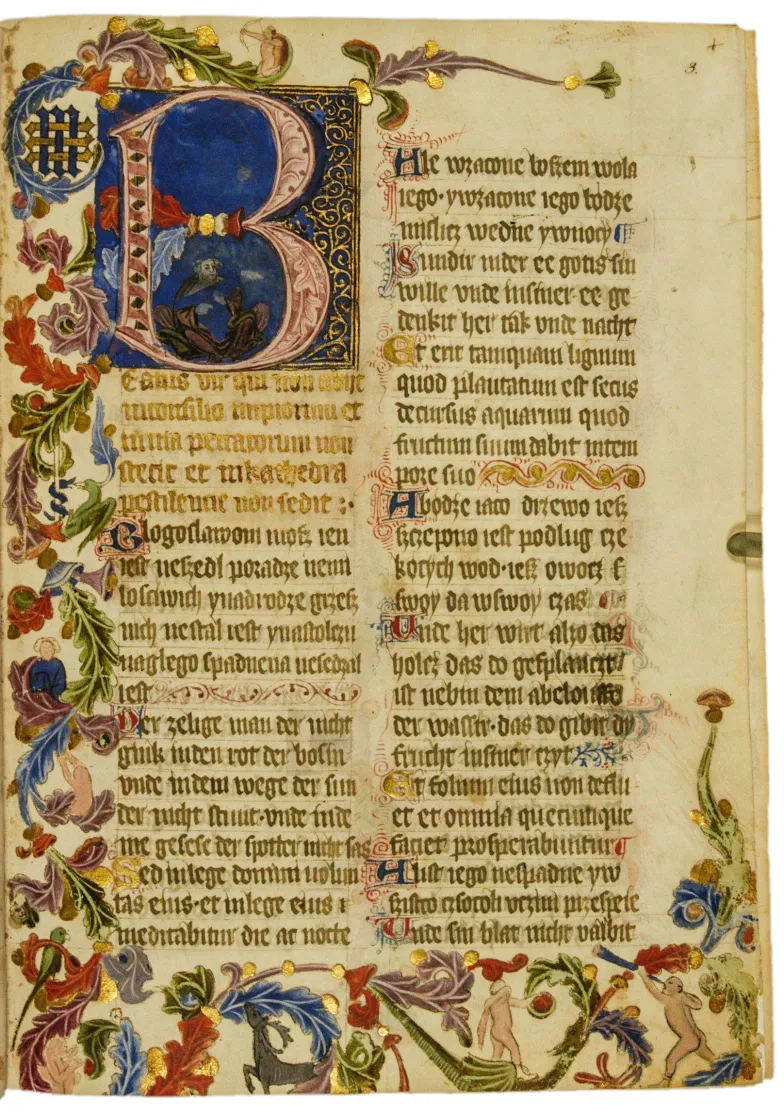 B
eatus vir qui non abijt
inconsilio impiorum et
inuia peccatorum non
stetit et inkathedra
pestilencie non sedit :·
Blogoslawoni mosz ien
iest neszedl poradze nemi
losciwich ynadrodze grzesz
nich nestal iest ynastolczu
naglego spadnena nesedzal
iest
Der zelige man der nicht
gink inden rot der bosin
vnde indem wege der sun
der nicht stunt·vnde inde
me gesese der spotter nicht sas
Sed inlege domini uolun
tas eius·et inlege eius
meditabitur die ac nocte
3.
Ale wzacone boszem wola
iego·ywzacone iego bodze
mislicz wedne ywnocy
Sundir inder ee gotis sin
wille vnde insiner ee ge
denkit her tak vnde nacht
Et erit tamquam lignum
quod plantatum est secus
decursus aquarum quod
fructum suum dabit intem
pore suo
Abodze iaco drzewo iesz
szczepono iest podlug cze
kocych wod·iesz owocz
swoy da wswoy czas
Unde her wirt alzo das
holcz das do gesplanczt
ist nebin dem
der wassir·das do gibit dy
frucht insiner czyt
Et folium eius non deflu
et et omnia quecumque
faciet prosperabuntur
Alist iego nespadne yw
szistco czsocoli vczini przespeie
Unde sin blat nicht valbit